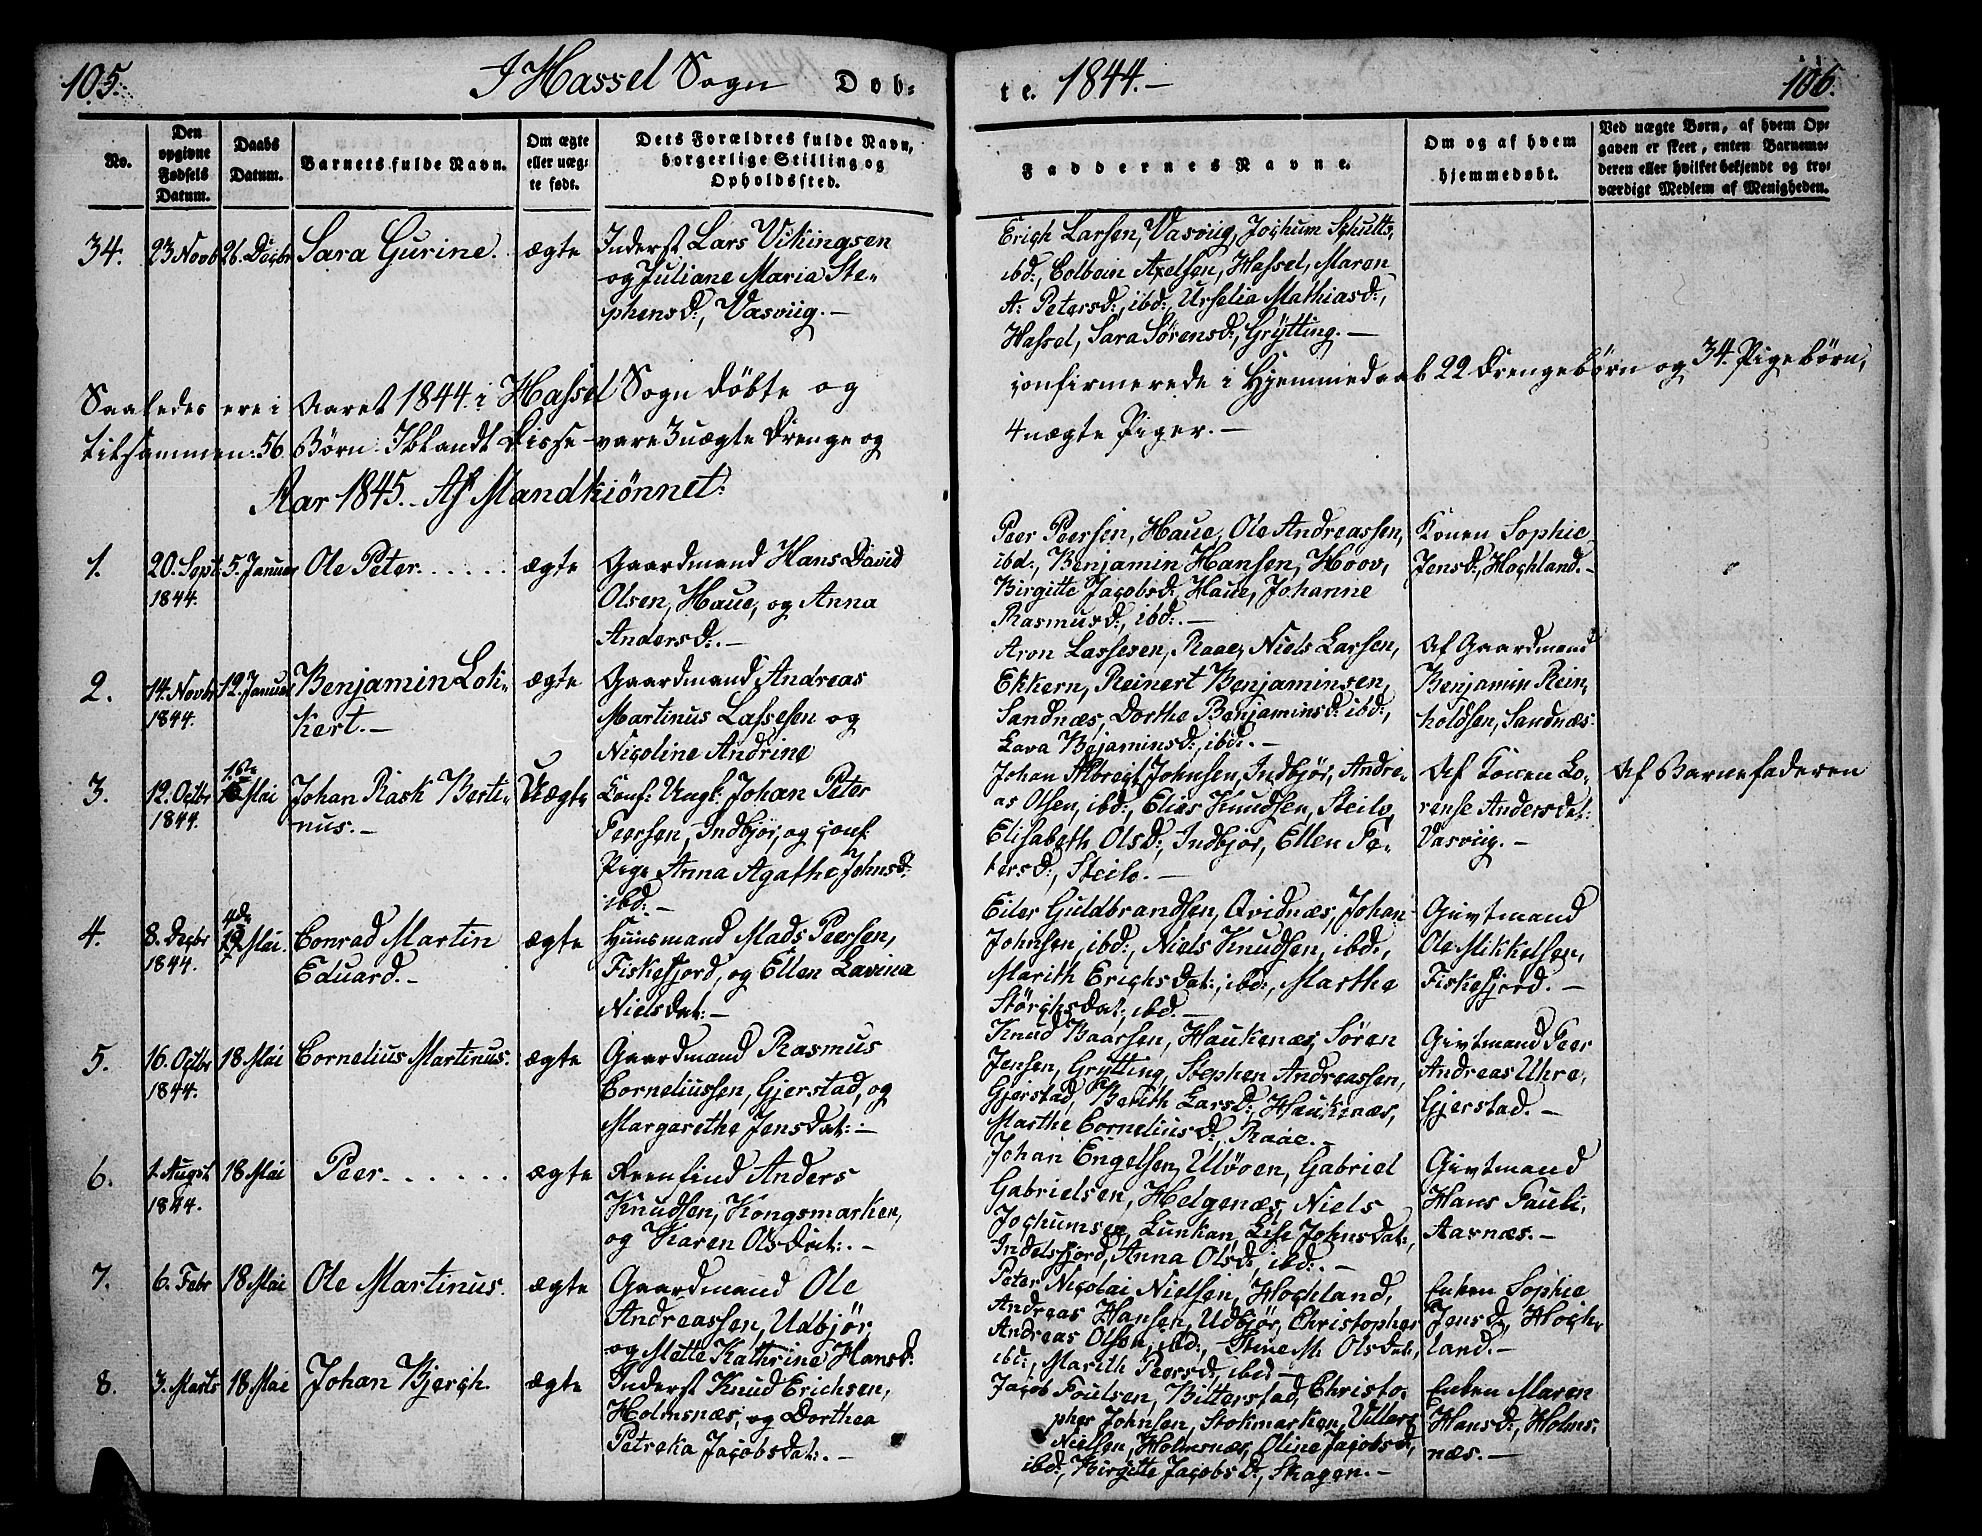 105.
I Hassel Sogn
Døb-
te. 1844.-
106.
No.
Den opgivne Fødsels Datum.
Daabs Datum.
Barnets fulde Navn.
Om ægte eller uæg- te født.
Dets Forældres fulde Navn, borgerlige Stilling og Opholdssted.
Faddernes Navne.
Om og af hvem hjemmedøbt.
Ved uægte Børn, af hvem Op- gaven er skeet, enten Barnemo- deren eller hvilket bekjendt og tro- værdigt Medlem af Menigheden.
34.
23 Novb
26. Decbr
Sara Gurine.
ægte
Inderst Lars Vikingsen
og Juliane Maria Ste-
phensd:, Vasviig.-
Erich Larsen, Vasviig, Jochum Schutts,
ibd:, Colbein Axelsen, Hassel, Maren
A: Petersd:, ibd:, Urselia Mathiasd:,
Hassel, Sara Sørensd:, Grytting.-
Saaledes ere i Aaret 1844 i Hassel Sogn døbte og
confirmerede i Hjemmedaab 22 Drengebørn og 34 Pigebørn,
tilsammen: 56 Børn. Iblandt disse vare 3 uægte Drenge og
4 uægte Piger.-
Aar 1845. Af Mandkiønnet:
1.
20. Sept
1844.
5. Januar
Ole Peter......
ægte
Gaardmand Hans David
Olsen, Haue, og Anna
Andersd:.-
Peer Peersen, Haue, Ole Andreassen,
ibd:, Benjamin Hansen, Hoov,
Birgitte Jacobsd:, Haue, Johanne
Rasmusd:, ibd:.-
Konen Sophie
Jensd:, Hochland.-
2.
14. Novbr
1844.
12. Januar
Benjamin Loti-
kert.-
ægte
Gaardmand Andreas
Martinus Lassesen og
Nicoline Andrine
Aron Lassesen, Raae, Niels Larsen,
Ekkern, Reinert Benjaminsen,
Sandnæs, Dorthe Benjaminsd: ibd:,
Lava Bejaminsd:, ibd:.-
Af Gaardmand
Benjamin Rein-
holdsen, Sandnæs.
3.
12. Octbr
1844.
Mai
Johan Rask Berti-
nus.-
Uægte
Conf: Ungk: Johan Peter
Peersen, Indbjør, og conf:
Pige Anna Agathe Johnsd:
ibd:.-
Johan Albregt Johnsen, Indbjør, Andre-
as Olsen, ibd:, Elias Knudsen, Steilo,
Elisabeth Olsd:, Indbjør, Ellen Pe-
tersd:, Steilo.-
Af Konen Lo-
rense Andersdat:
Vasviig.-
Af Barnefaderen
4.
8. Decbr
1844.
4de
Mai.
Conrad Martin
Eduard.-
ægte
Huusmand Mads Peersen,
Fiskefjord, og Ellen Lavina
Nielsdat:-
Eiler Guldbrandsen, Qvidnæs, Johan
Johnsen, ibd:, Niels Knudsen, ibd:,
Marith Erichsdat:, ibd:, Marthe
Størchsdat: ibd.-
Givtmand
Ole Mikkelsen,
Fiskefjord.-
5.
16. Octbr
1844.
18 Mai
Cornelius Martinus.
ægte
Gaardmand Rasmus
Corneliussen, Gjerstad, og
Margarethe Jensdat:-
Knud Baarsen, Haukenæs, Søren
Jensen, Grytting, Stephen Andreassen,
Gjerstad, Berith Larsd:, Haukenæs,
Marthe Corneliusd:, Raae.-
Givtmand Peer
Andreas Uhre,
Gjerstad.-
6.
1. Augst
1844.
18 Mai
Peer......
ægte
Anders
Knudsen, Kongsmarken,
og Karen Olsdat:.-
Johan Engelsen, Uløøen, Gabriel
Gabrielsen, Helgenæs, Niels
Jochumsen, Lunkan, Lise Johnsdat:,
Indelsfjord, Anna Olsd:, ibd:.-
Givtmand
Hans Pauli,
Aarnæs.-
7.
6. Febr
18 Mai
Ole Martinus.
ægte
Gaardmand Ole
Andreassen, Udbjør,
og Mette Kathrine Hansd:
Peter Nicolai Nielsen, Hochland,
Andreas Hansen, Udbjør, Christopher
Andreas Olsen, ibd:, Stine M. Olsdat:,
ibd:, Marith Peersd:, ibd.-
Enken Sophie
Jensd:, Hoch-
land.-
8.
3. Marts
18 Mai
Johan Bjergh.
ægte
Inderst Knud Erichsen,
Holmsnæs, og Dorthea
Petreka Jacobsdat:.-
Jacob Poulsen, Bitterstad, Christo-
pher Johnsen, Stokmarken, Villum
Nielsen, Holmsnæs, Oline Jacobsd:,
ibd:, Birgitte Jacobsd:, Skagen.-
Enken Maren
Hansd:, Holms-
næs.-